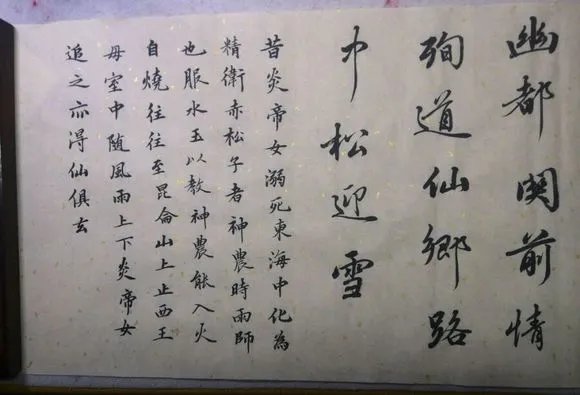 幽都関前情
殉道仙鄉路
松迎雪
昔炎帝女溺死東海中化為
精衛赤松子者神農時雨師
也服水玉以教神農能入火
自燒往往至昆侖山上止西王
母室中随風雨上下炎帝女
追之亦得仙俱玄